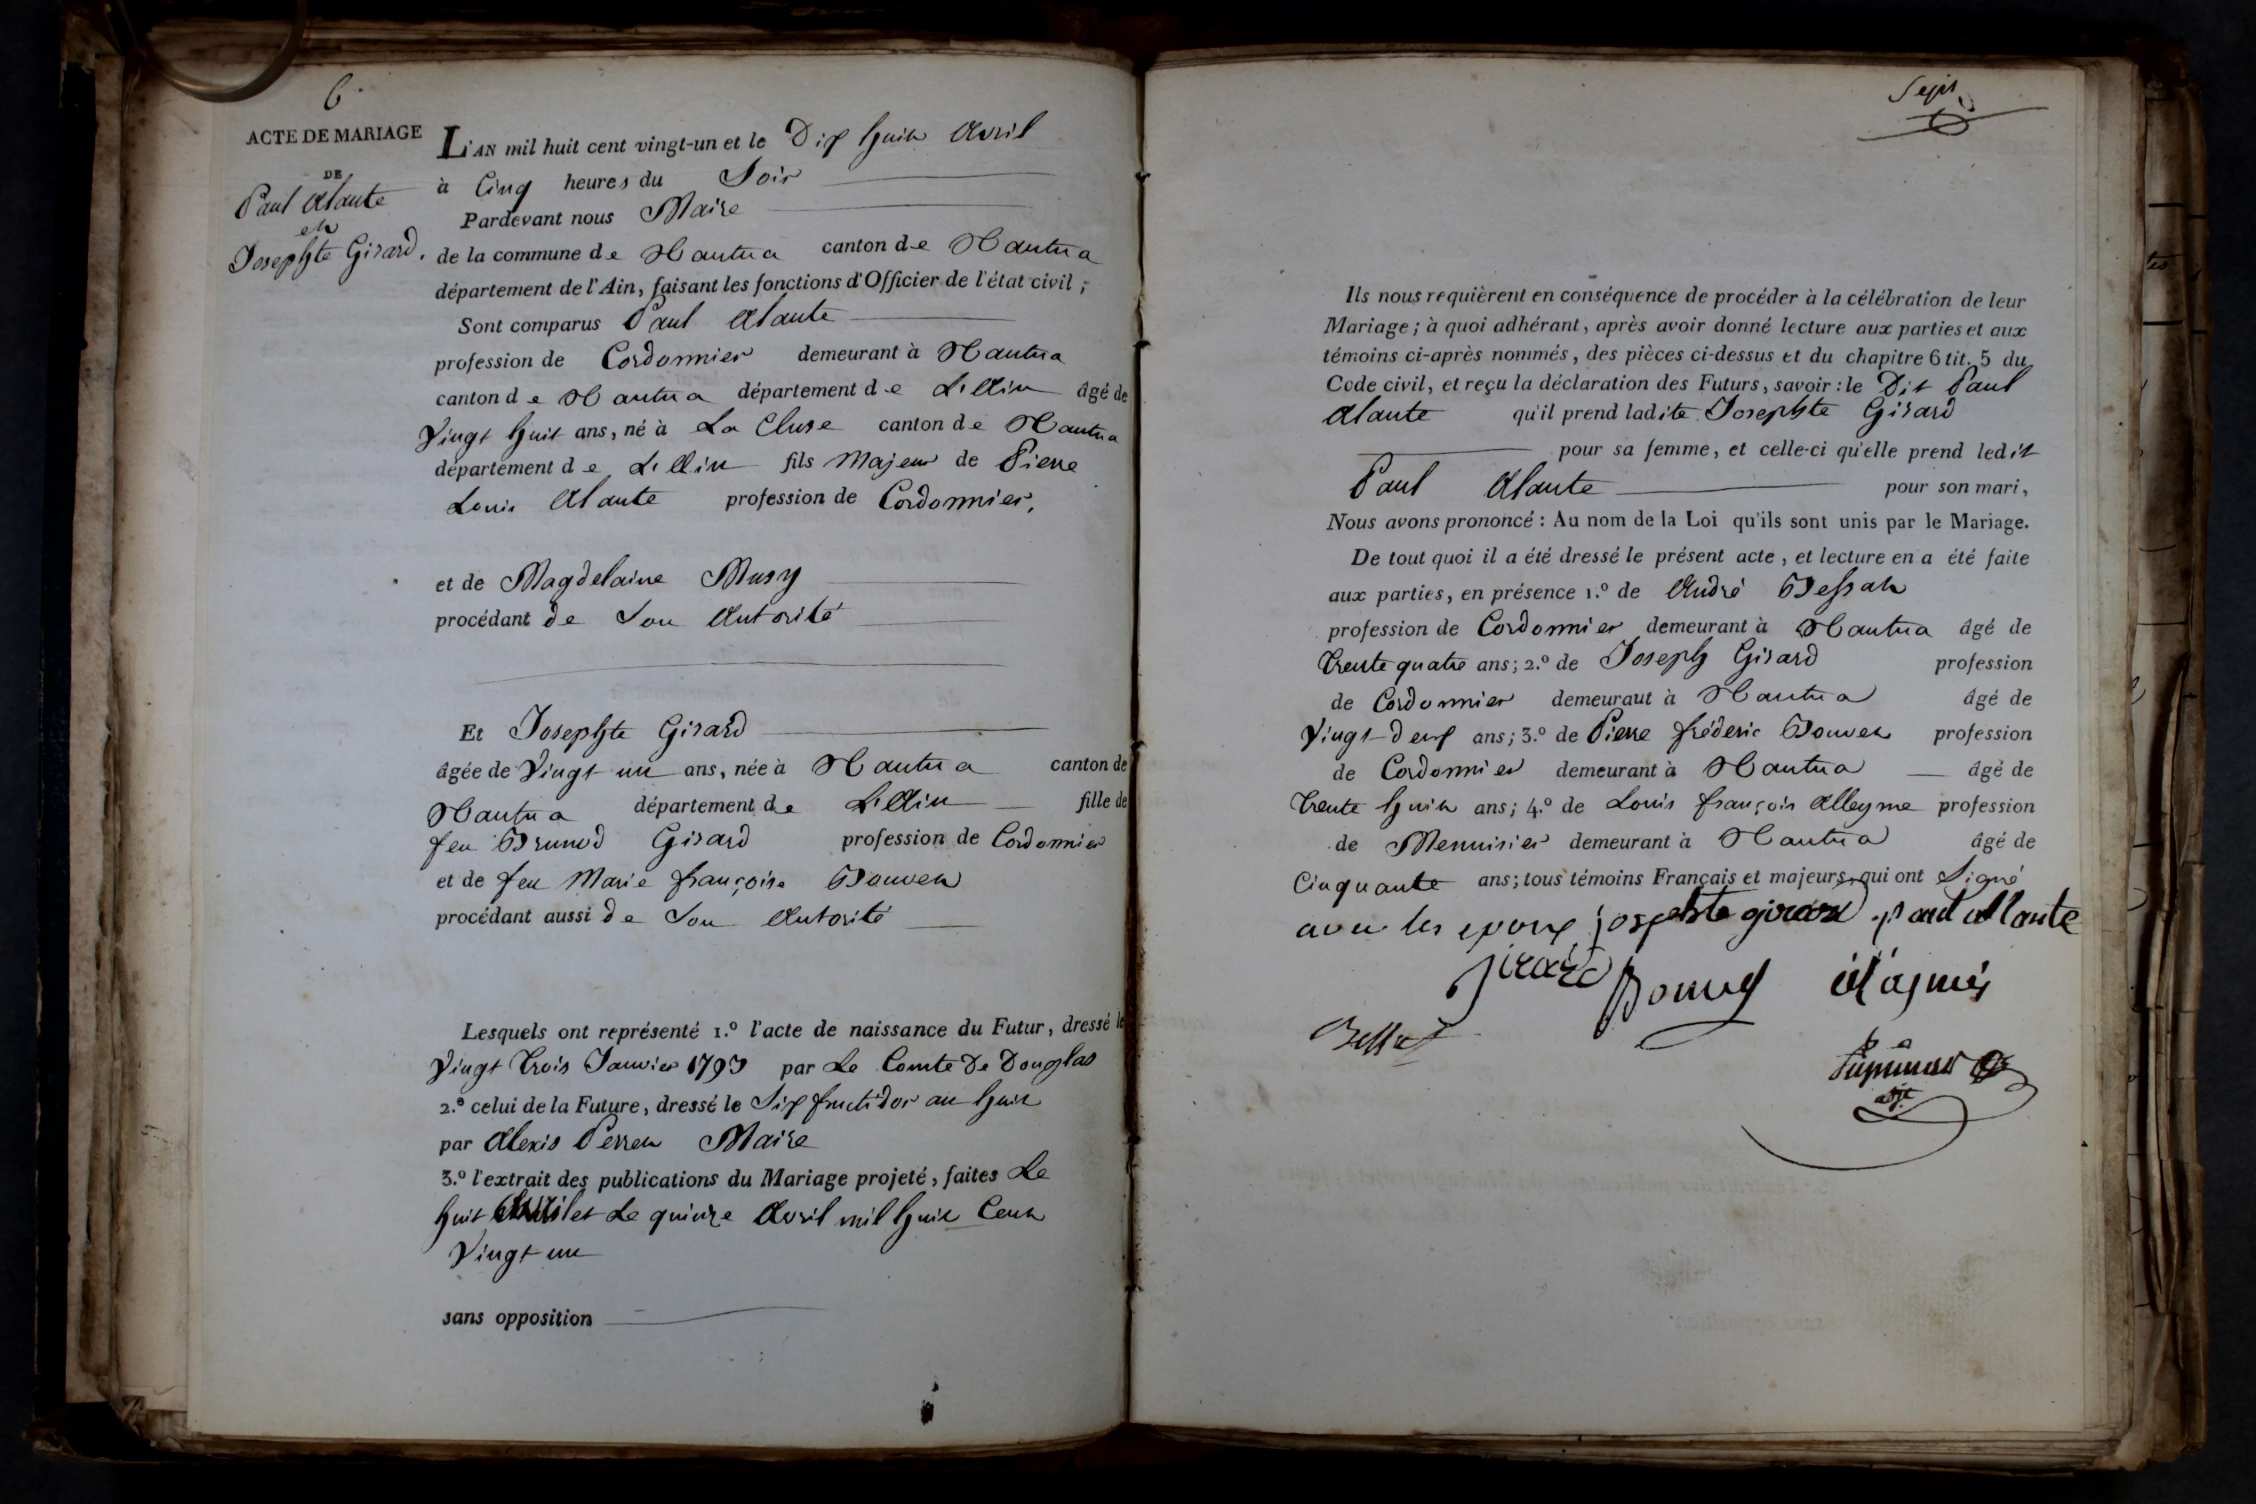 6
ACTE DE MARIAGE
DE
Paul Alante
et
Josephte Girard.
L'AN mil huit cent vingt-un et le Dix huit Avril
à Cinq heures du Soir
Pardevant nous Maire
de la commune de Nantua canton de Nantua
département de l'Ain, faisant les fonctions d'Officier de l'état civil ;
Sont comparus Paul Alante
profession de Cordonnier demeurant à Nantua
canton de Nantua département de L'Ain âgé de
Vingt huit ans, né à La Cluse canton de Nantua
département de L'Ain fils Majeur de Pierre
Louis Alante profession de Cordonnier,
et de Magdelaine Musy
procédant de Son Autorité
Et Josephte Girard
âgée de Vingt un ans, née à Nantua canton de
Nantua département de L'Ain fille de
feu Brunod Girard profession de Cordonnier
et de feu Marie françoise Bouvet
procédant aussi de Son Autorité
Lesquels ont représenté 1.º l'acte de naissance du Futur, dressé le
Vingt Trois Janvier 1793 par Le Comte De Douglas
2.º celui de la Future, dressé le Six fructidor an huit
par Alexis Perret Maire
3.º l'extrait des publications du Mariage projeté, faites Le
huit et Le quinze Avril mil huit Cent
Vingt un
sans opposition
Sept
Ils nous requièrent en conséquence de procéder à la célébration de leur
Mariage ; à quoi adhérant, après avoir donné lecture aux parties et aux
témoins ci-après nommés, des pièces ci-dessus et du chapitre 6 tit. 5 du
Code civil, et reçu la déclaration des Futurs, savoir : le Dit Paul
Alante qu'il prend ladite Josephte Girard
pour sa femme, et celle-ci qu'elle prend ledit
Paul Alante pour son mari,
Nous avons prononcé : Au nom de la Loi qu'ils sont unis par le Mariage.
De tout quoi il a été dressé le présent acte, et lecture en a été faite
aux parties, en présence 1.º de André Bessat
profession de Cordonnier demeurant à Nantua âgé de
Trente quatre ans ; 2.º de Joseph Girard profession
de Cordonnier demeuraut à Nantua âgé de
Vingt-deux ans ; 3.º de Pierre fréderic Bouvet profession
de Cordonnier demeurant à Nantua âgé de
Trente huit ans ; 4.º de Louis françois Alleyme profession
de Menuisier demeurant à Nantua âgé de
Cinquante ans ; tous témoins Français et majeurs, qui ont Signé
avec les epoux josephte girard paul allante
girard Bouvet
Bessat